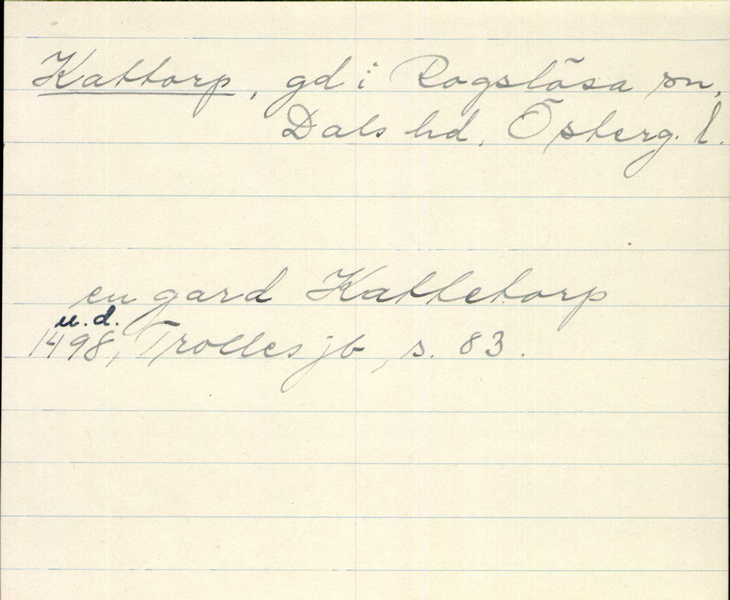 Kattorp, gd i Rogslösa sn,
Dals hd. Österg. l.
en gard Kattetorp
u. d.
1498, Trolles jb, s. 83.